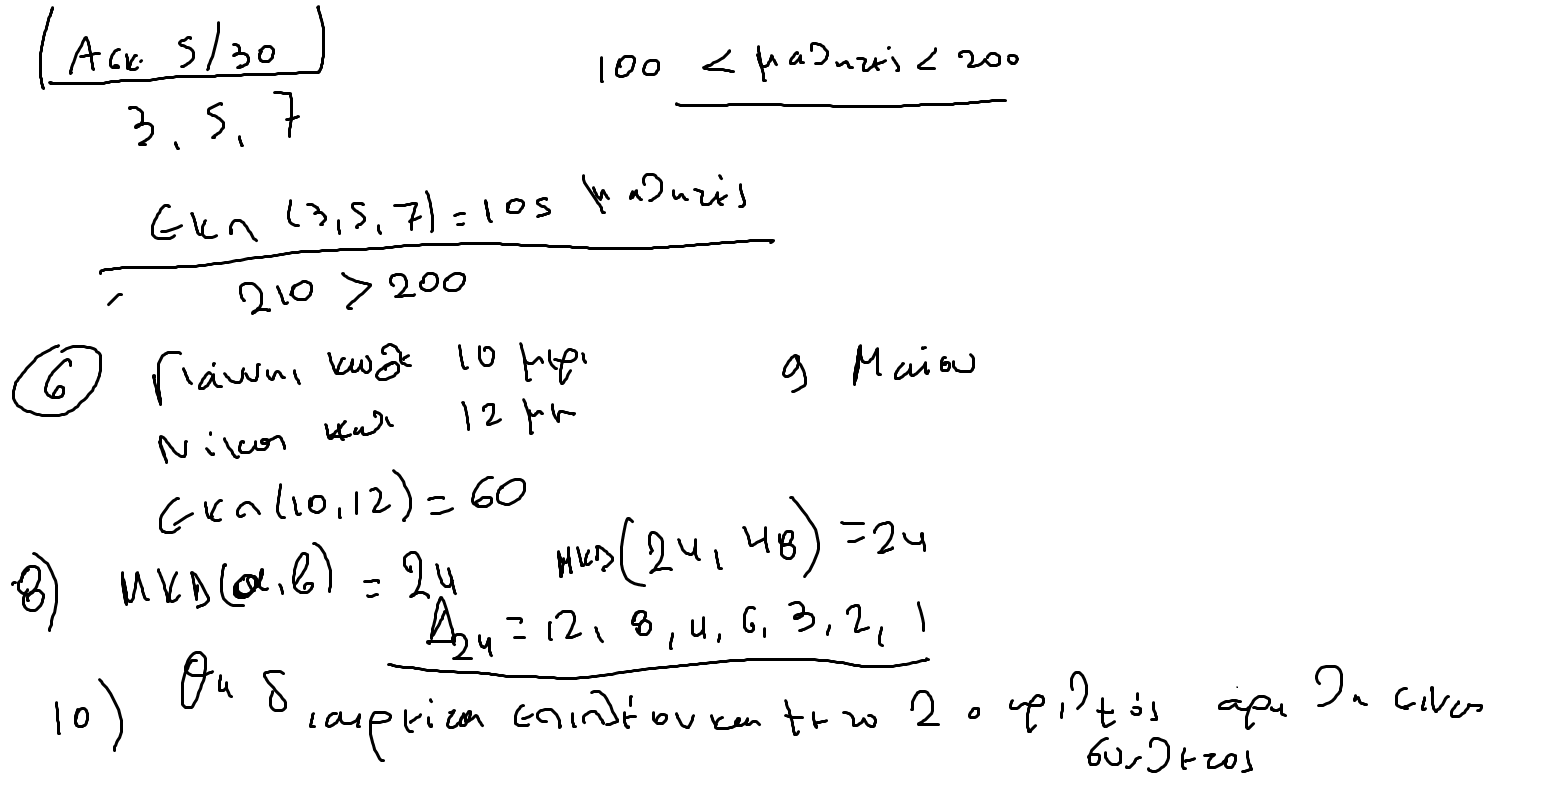 Ασκ. 5/30
100 < μαθητές < 200
3, 5, 7
ΕΚΠ (3, 5, 7) = 105 μαθητές
210 > 200
6 Γιάννης κάθε 10 μέρ
9 Μαίου
Νίκος κάθε 12 με
ΕΚΠ (10, 12) = 60
8) ΜΚΔ (α, β) = 24 ΜΚΔ (24, 48) = 24
Δ24 = 12, 8, 4, 6, 3, 2, 1
10) Θα διαιρείται επιπλέον και με το 2 ο αριθμός άρα θα είναι
σύνθετος